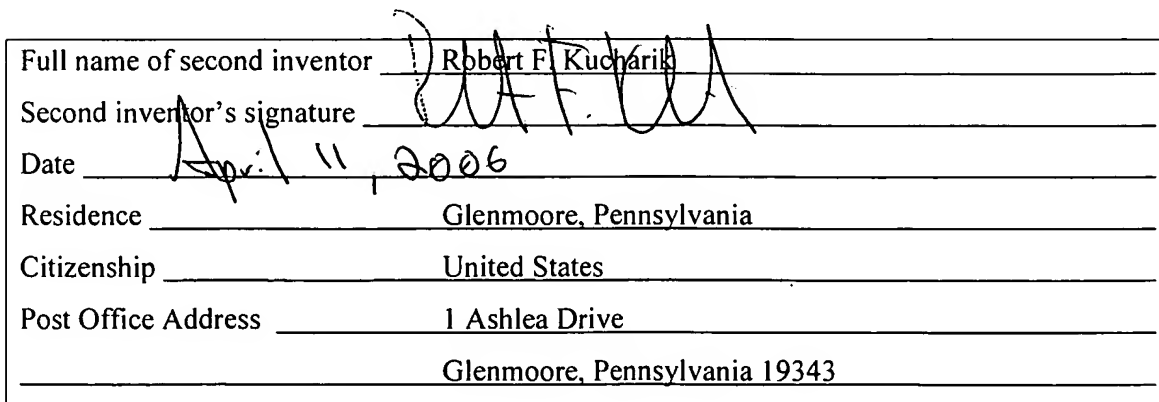 Full name of second inventor Robert F. Kucharik
Second inventor's signature
Date April 11, 2006
Residence Glenmoore, Pennsylvania
Citizenship United States
Post Office Address 1 Ashlea Drive
Glenmoore, Pennsylvania 19343